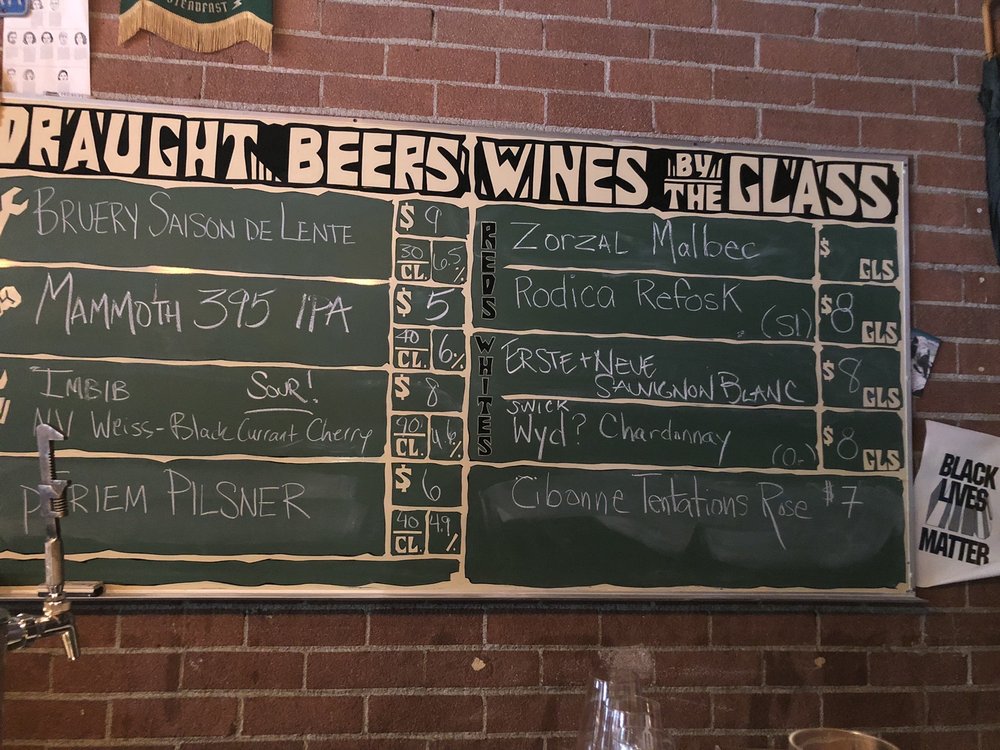 STEADFAST
DRAUGHT BEERS
BRUERY SAISON DE LENTE
$ 9
30 CL. 6.5 %
MAMMOTH 395 IPA
$ 5
40 CL. 6 %
IMBIB SOUR!
NV Weiss-Black Currant Cherry
$ 8
40 CL. 4.6 %
PFRIEM PILSNER
$ 6
40 CL. 4.9 %
WINES BY THE GLASS
REDS
Zorzal Malbec
$ GLS
Rodica Refosk (SI)
$ 8 GLS
WHITES
ERSTE + NEUE
SAUVIGNON BLANC
$ 8 GLS
SWICK
Wyd? Chardonnay
$ 8 GLS
Cibonne Tentations Rose $7
BLACK
LIVES
MATTER